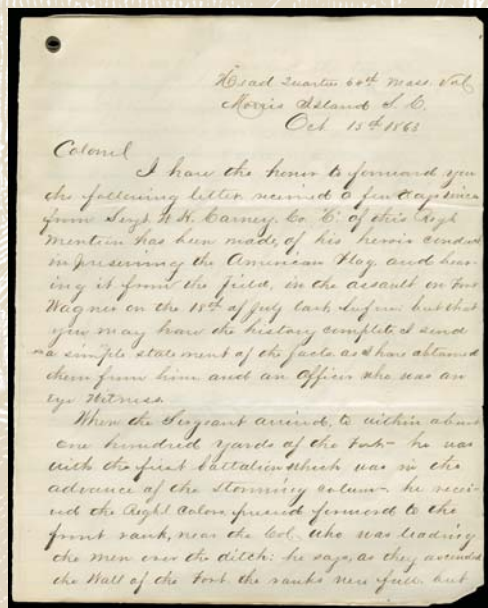 Head Quarters 54th Mass. Vol
Morris Island S. C.
Oct 15th 1863
Colonel
I have the honor to forward you
the following letter, received a few days since
from Sergt W. H. Carney, Co "C" of this Regt
mention has been made, of his heroic conduct
in preserving the American Flag, and bear-
ing it from the field, in the assault on Fort
Wagner on the 18th of July last, before: but that
you may have the history complete, I send
a simple statement of the facts as I have obtained
them from him and an Officer who was an
eye Witness.
When the Sergeant arrived, to within about
one hundred yards of the Fort— he was
with the first battalion which was in the
advance of the storming column— he recei-
ved the Regtl Colors, pressed forward to the
front rank, near the Col, who was leading
the men over the ditch: he says, as they ascended
the Wall of the Fort, the ranks were full, but